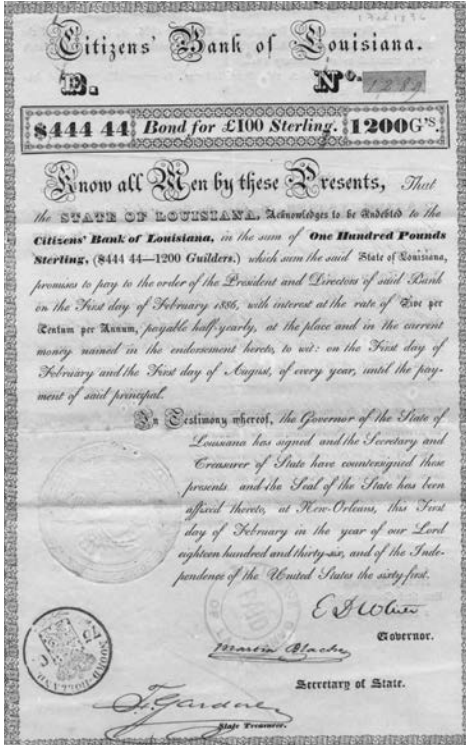 1 Feb 1836
Citizens' Bank of Louisiana.
E. No.
$444 44 Bond for £100 Sterling. 1200 G's.
Know all Men by these Presents, That
the STATE OF LOUISIANA, Acknowledges to be Indebted to the
Citizens' Bank of Louisiana, in the sum of One Hundred Pounds
Sterling, ($444 44—1200 Guilders.) which sum the said State of Louisiana,
promises to pay to the order of the President and Directors of said Bank
on the First day of February 1886, with interest at the rate of Five per
Centum per Annum, payable half-yearly, at the place and in the current
money named in the endorsement hereto, to wit: on the First day of
February and the First day of August, of every year, until the pay-
ment of said principal.
In Testimony whereof, the Governor of the State of
Louisiana has signed and the Secretary and
Treasurer of State have countersigned these
presents and the Seal of the State has been
affixed thereto, at New-Orleans, this First
day of February in the year of our Lord
eighteen hundred and thirty-six, and of the Inde-
pendence of the United States the sixty-first.
PAID
Governor.
Martin Blache
Secretary of State.
NOORD-HOLLAND
75 C
F. Gardere
State Treasurer.